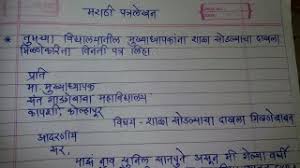 मराठी पत्रलेखन
* तुमच्या विद्यालयातील मुख्याध्यापकांना शाळा सोडल्याचा दाखला
मिळणेकरिता विनंती पत्र लिहा
प्रति
मा. मुख्याध्यापक
संत गाडगेबाबा महाविद्यालय
कापशी, कोल्हापूर
विषय - शाळा सोडल्याचा दाखला मिळणेबाबत
आदरणीय
सर,
माझं नाव सुनिल सातपुते असून मी गेल्या वर्षी